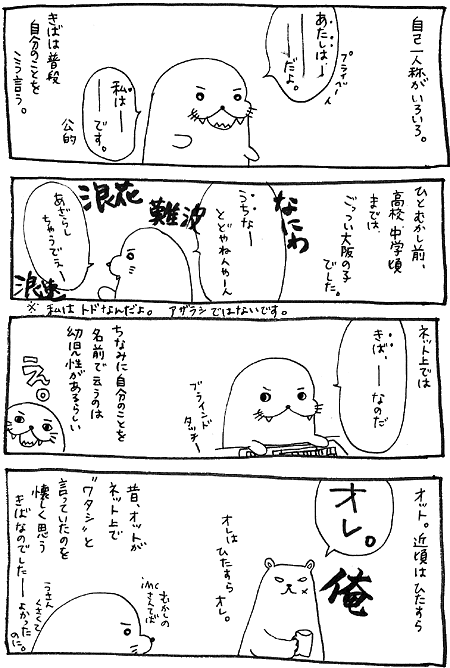 自己一人称がいろいろ。
プライベート
あたしはー
――だよ。
私はー
――です。
公的
きばは普段
自分のことを
こう言う。
ひとむかし前、
高校、中学頃
までは、
ごっつい大阪の子
でした。
なにわ
うちなー
とどやねんやーん
難波
浪花
あざらし
ちゃうでぇー
浪速
※私はトドなんだよ。アザラシではないです。
ネット上では
きば、――なのだ
ブラインド
タッチー
ちなみに自分のことを
名前で云うのは
幼児性があるらしい
うえ。
オット。近頃はひたすら
オレ。
俺
オレはひたすら
オレ。
昔、オットが
ネット上で
“ワタシ”と
言っていたのを
懐しく思う
きばなのでした――よかった
のに。
むかしの
imcさんてば
うさん
くさくて